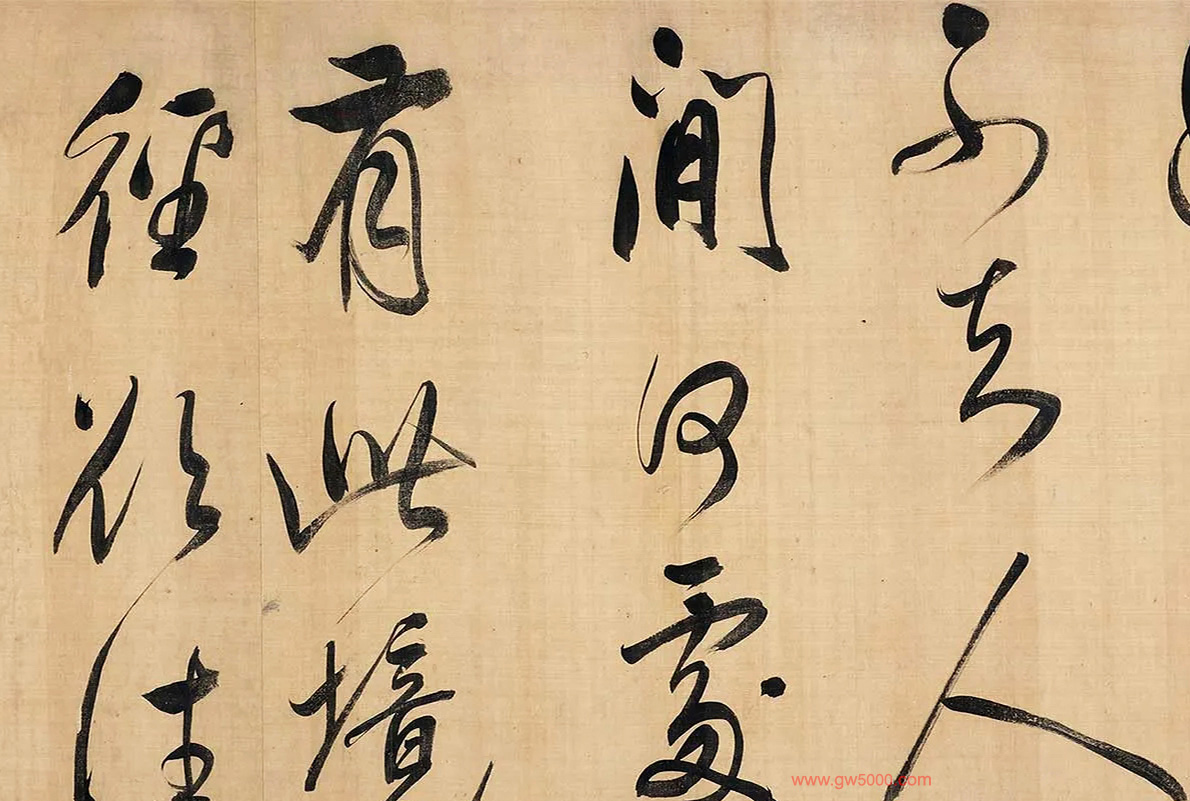 不知人
間何處
有此境
徑欲往
www.gw5000.com